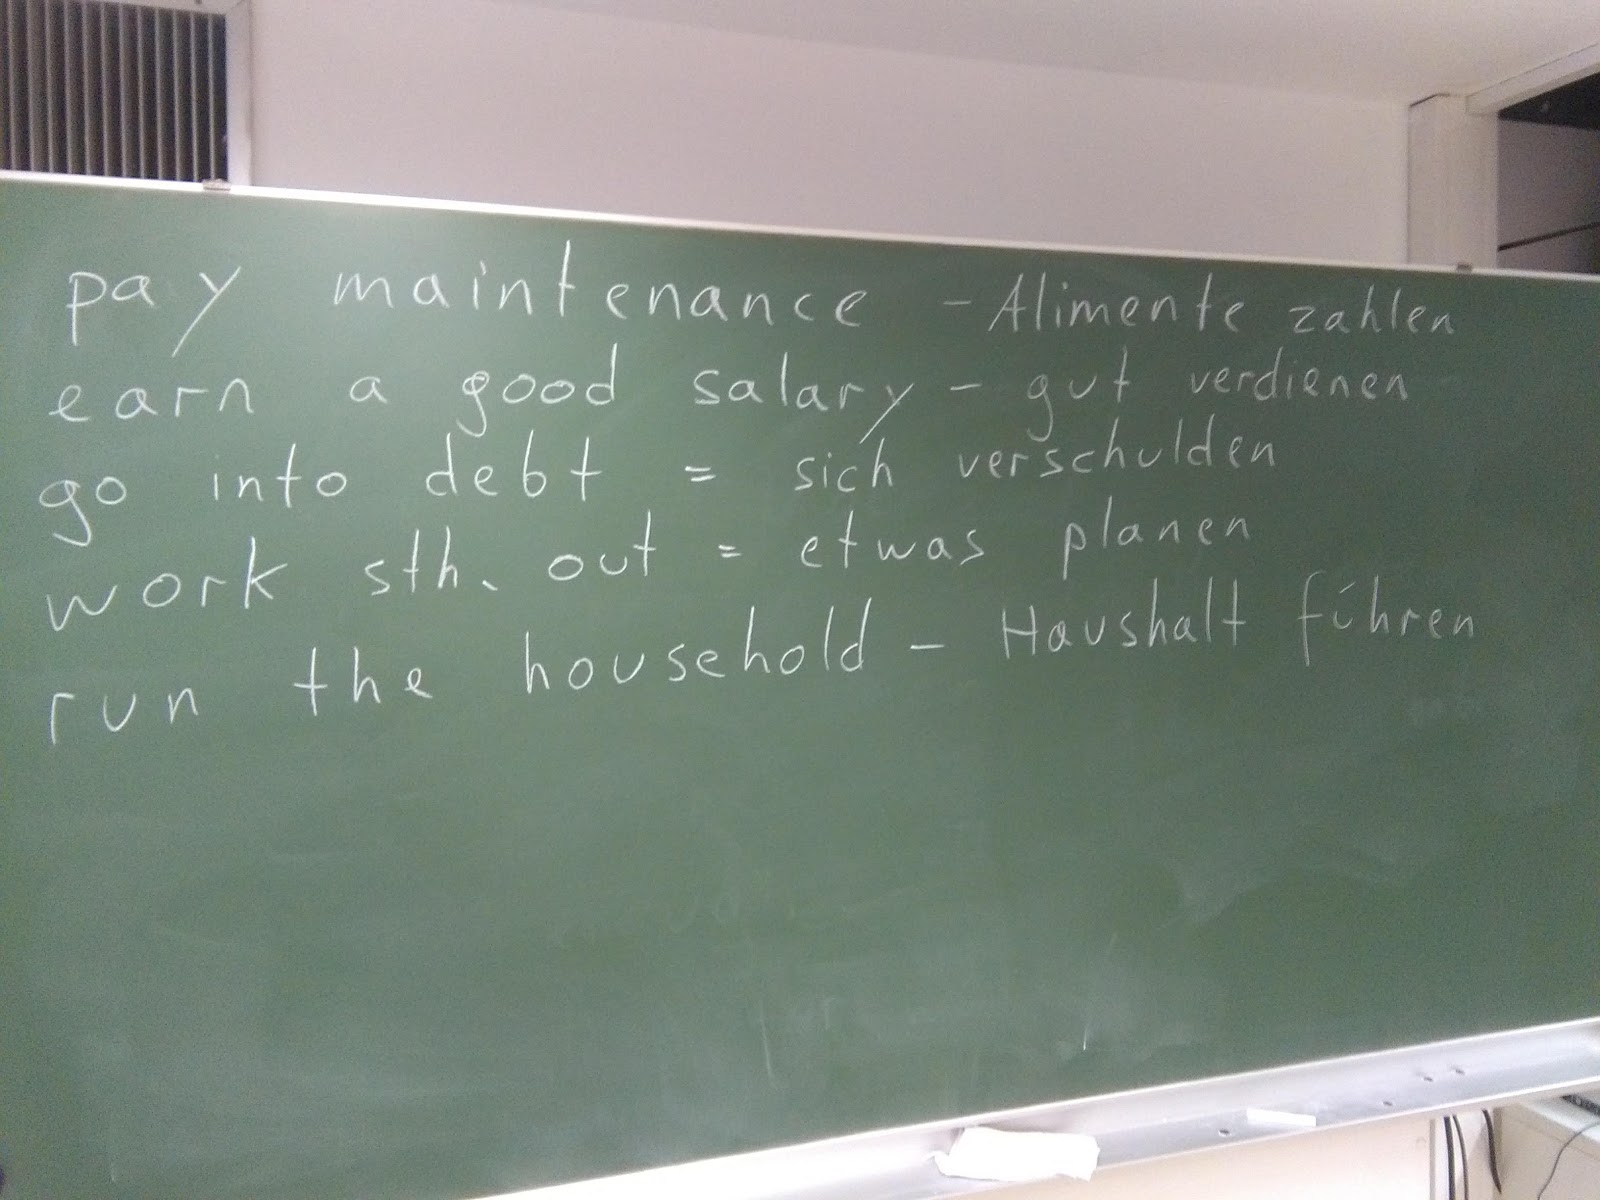 pay maintenance - Alimente zahlen
earn a good salary - gut verdienen
go into debt = sich verschulden
work sth. out = etwas planen
run the household - Haushalt führen